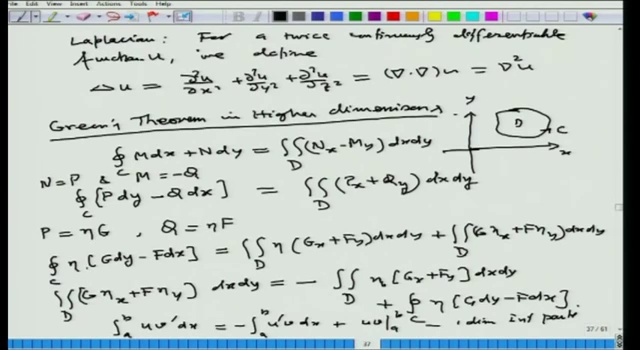 File Edit View Insert Actions Tools Help
Laplacian: For a twice continuously differentiable
function u, we define
Δu = ∂²u/∂x² + ∂²u/∂y² + ∂²u/∂z² = (∇·∇)u = ∇²u
Green's Theorem in Higher dimensions
∮_C Mdx + Ndy = ∬_D (N_x - M_y) dxdy
y D C x
N = P & M = -Q
∮_C [Pdy - Qdx] = ∬_D (P_x + Q_y) dxdy
P = ηG , Q = ηF
∮_C η [Gdy - Fdx] = ∬_D η (G_x + F_y) dxdy + ∬_D (Gη_x + Fη_y) dxdy
∬_D (Gη_x + Fη_y) dxdy = - ∬_D η [G_x + F_y] dxdy
+ ∮_C η [Gdy - Fdx].
∫_a^b uv'dx = -∫_a^b u'v dx + uv|_a^b int parts
37 / 61
37